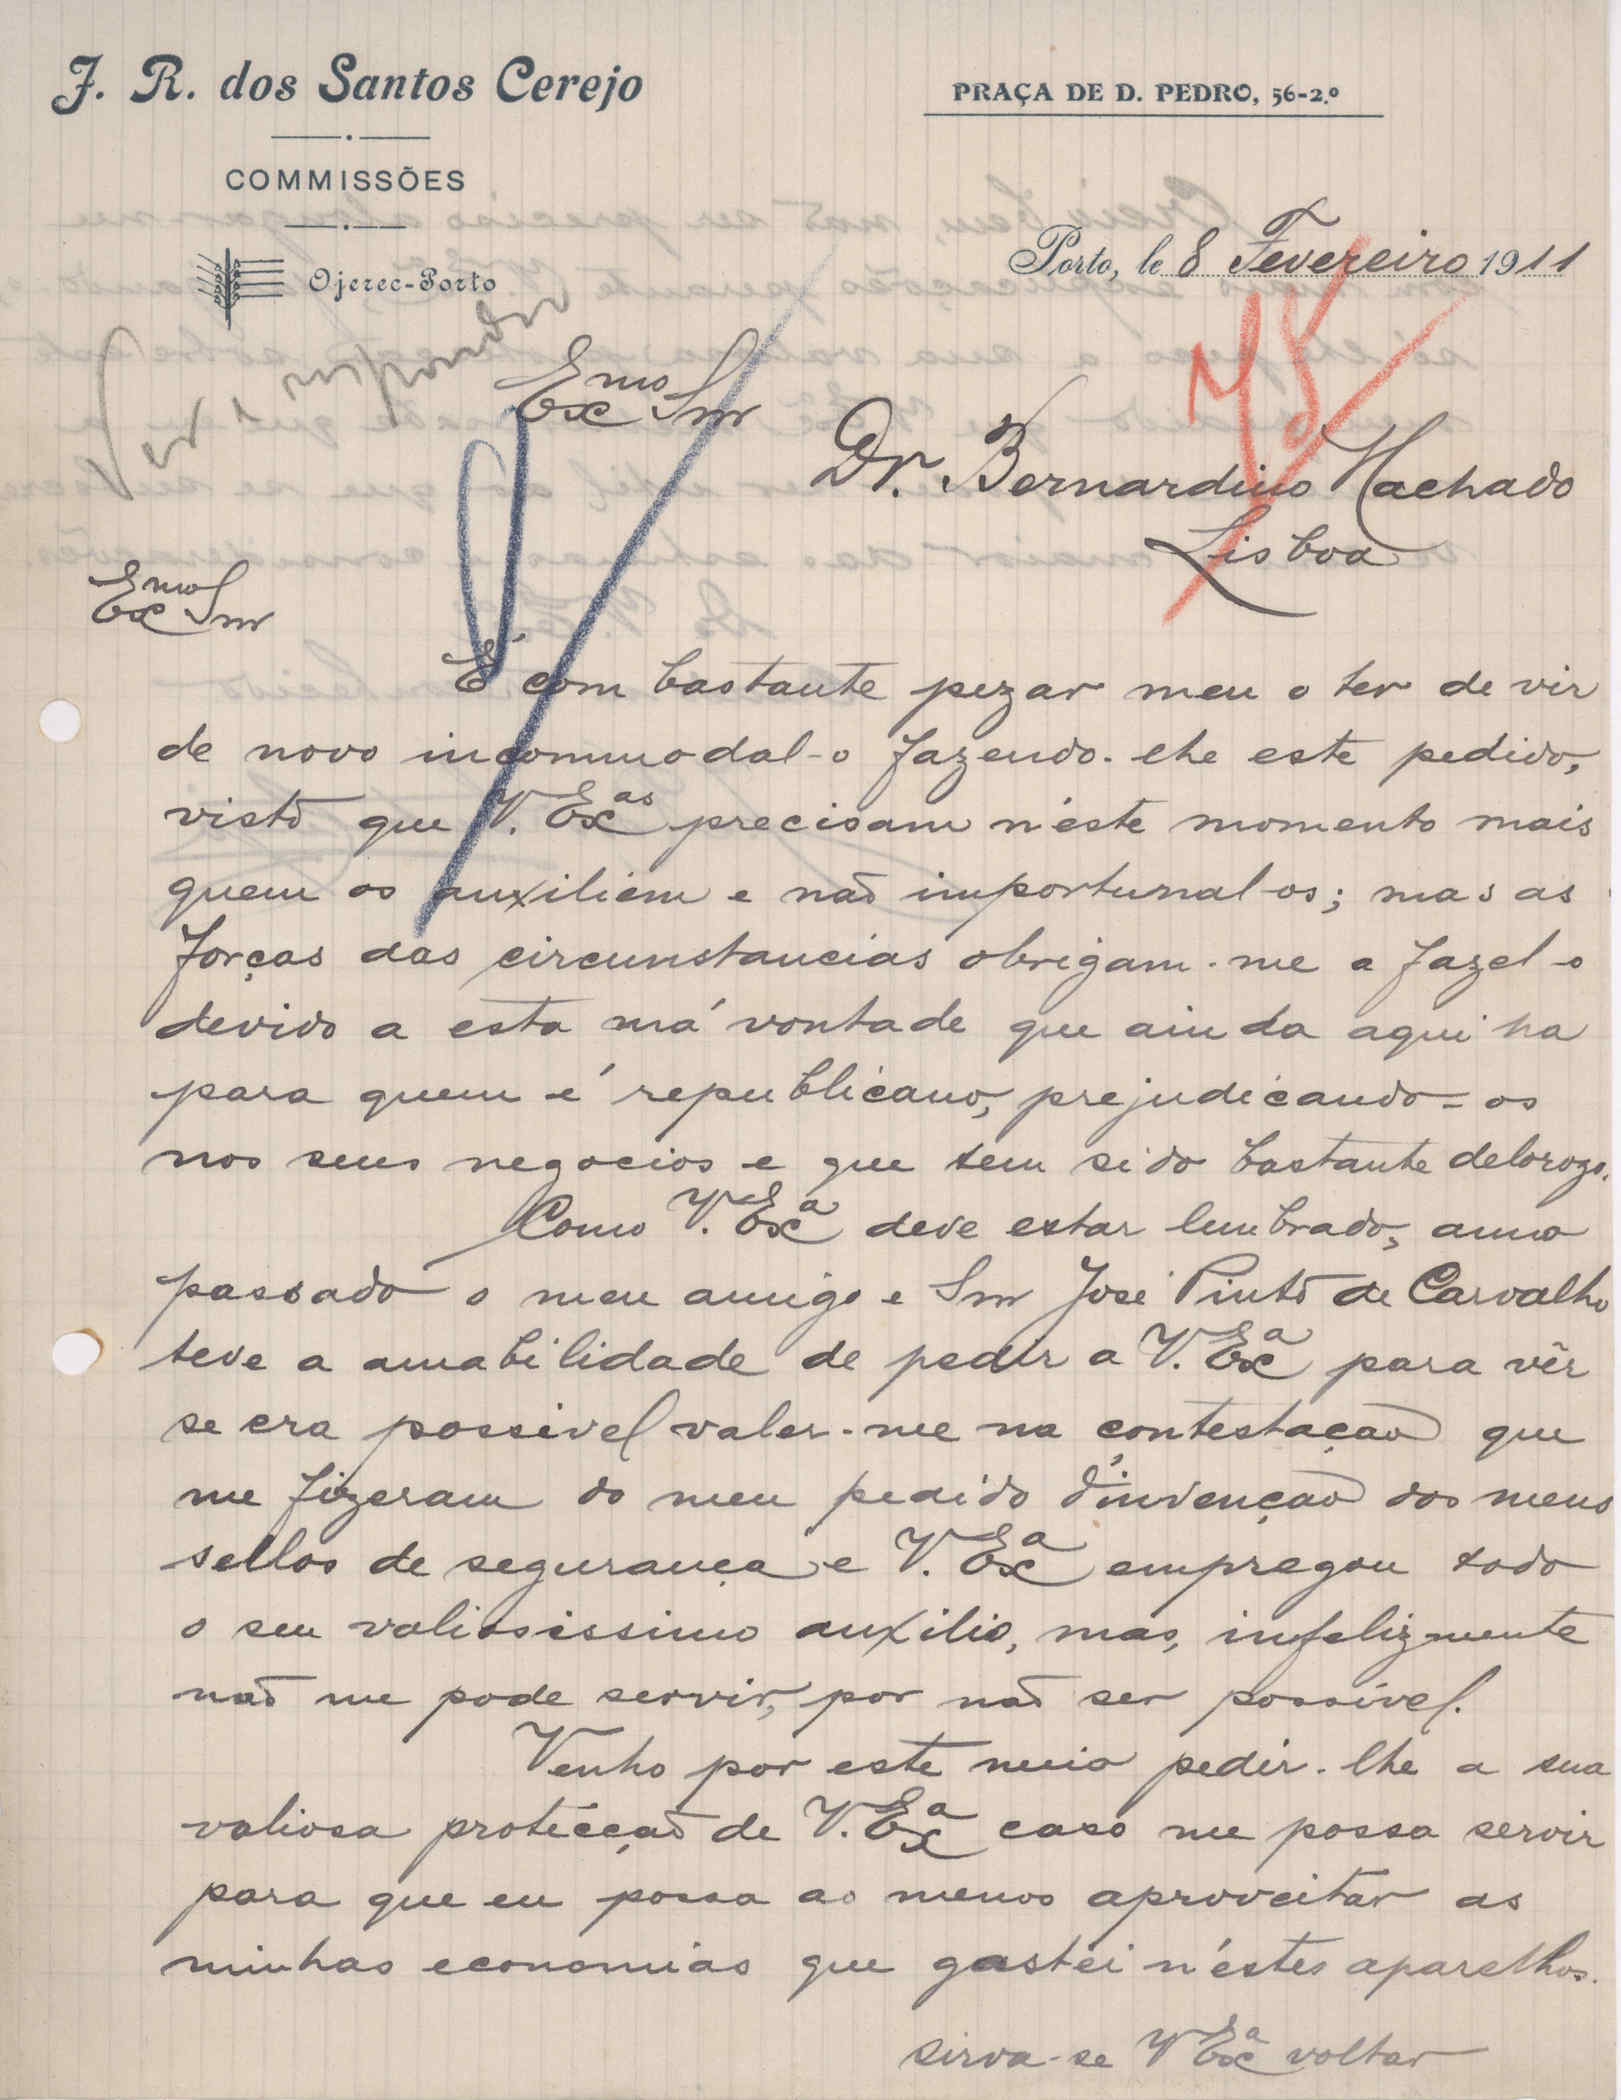 J. R. dos Santos Cerejo
PRAÇA DE D. PEDRO, 56-2.º
COMMISSÕES
Ojerec-Porto
Porto, le 8 Fevereiro 1911
Exmo Snr
Dr. Bernardino Machado
Lisboa
Exmo Snr
É com bastante pezar meu o ter de vir
de novo incommodal-o fazendo-lhe este pedido,
visto que V. Exas precisam n'este momento mais
quem os auxiliem e não importunal-os; mas as
forças das circunstancias obrigam-me a fazel-o
devido a esta má vontade que ainda aqui ha
para quem é republicano, prejudicando-os
nos seus negocios e que tem sido bastante delorozo.
Como V. Exa deve estar lembrado, anno
passado o meu amigo e Snr José Pinto de Carvalho
teve a amabilidade de pedir a V. Exa para vêr
se era possivel valer-me na contestação que
me fizeram do meu pedido d'invenção dos meus
sellos de segurança e V. Exa empregou todo
o seu valiosissimo auxilio, mas, infelizmente
não me pode servir, por não ser possivel.
Venho por este meio pedir-lhe a sua
valiosa protécção de V. Exa caso me possa servir
para que eu possa ao menos aproveitar as
minhas economias que gastei n'éstes aparelhos.
Sirva-se V Exa voltar